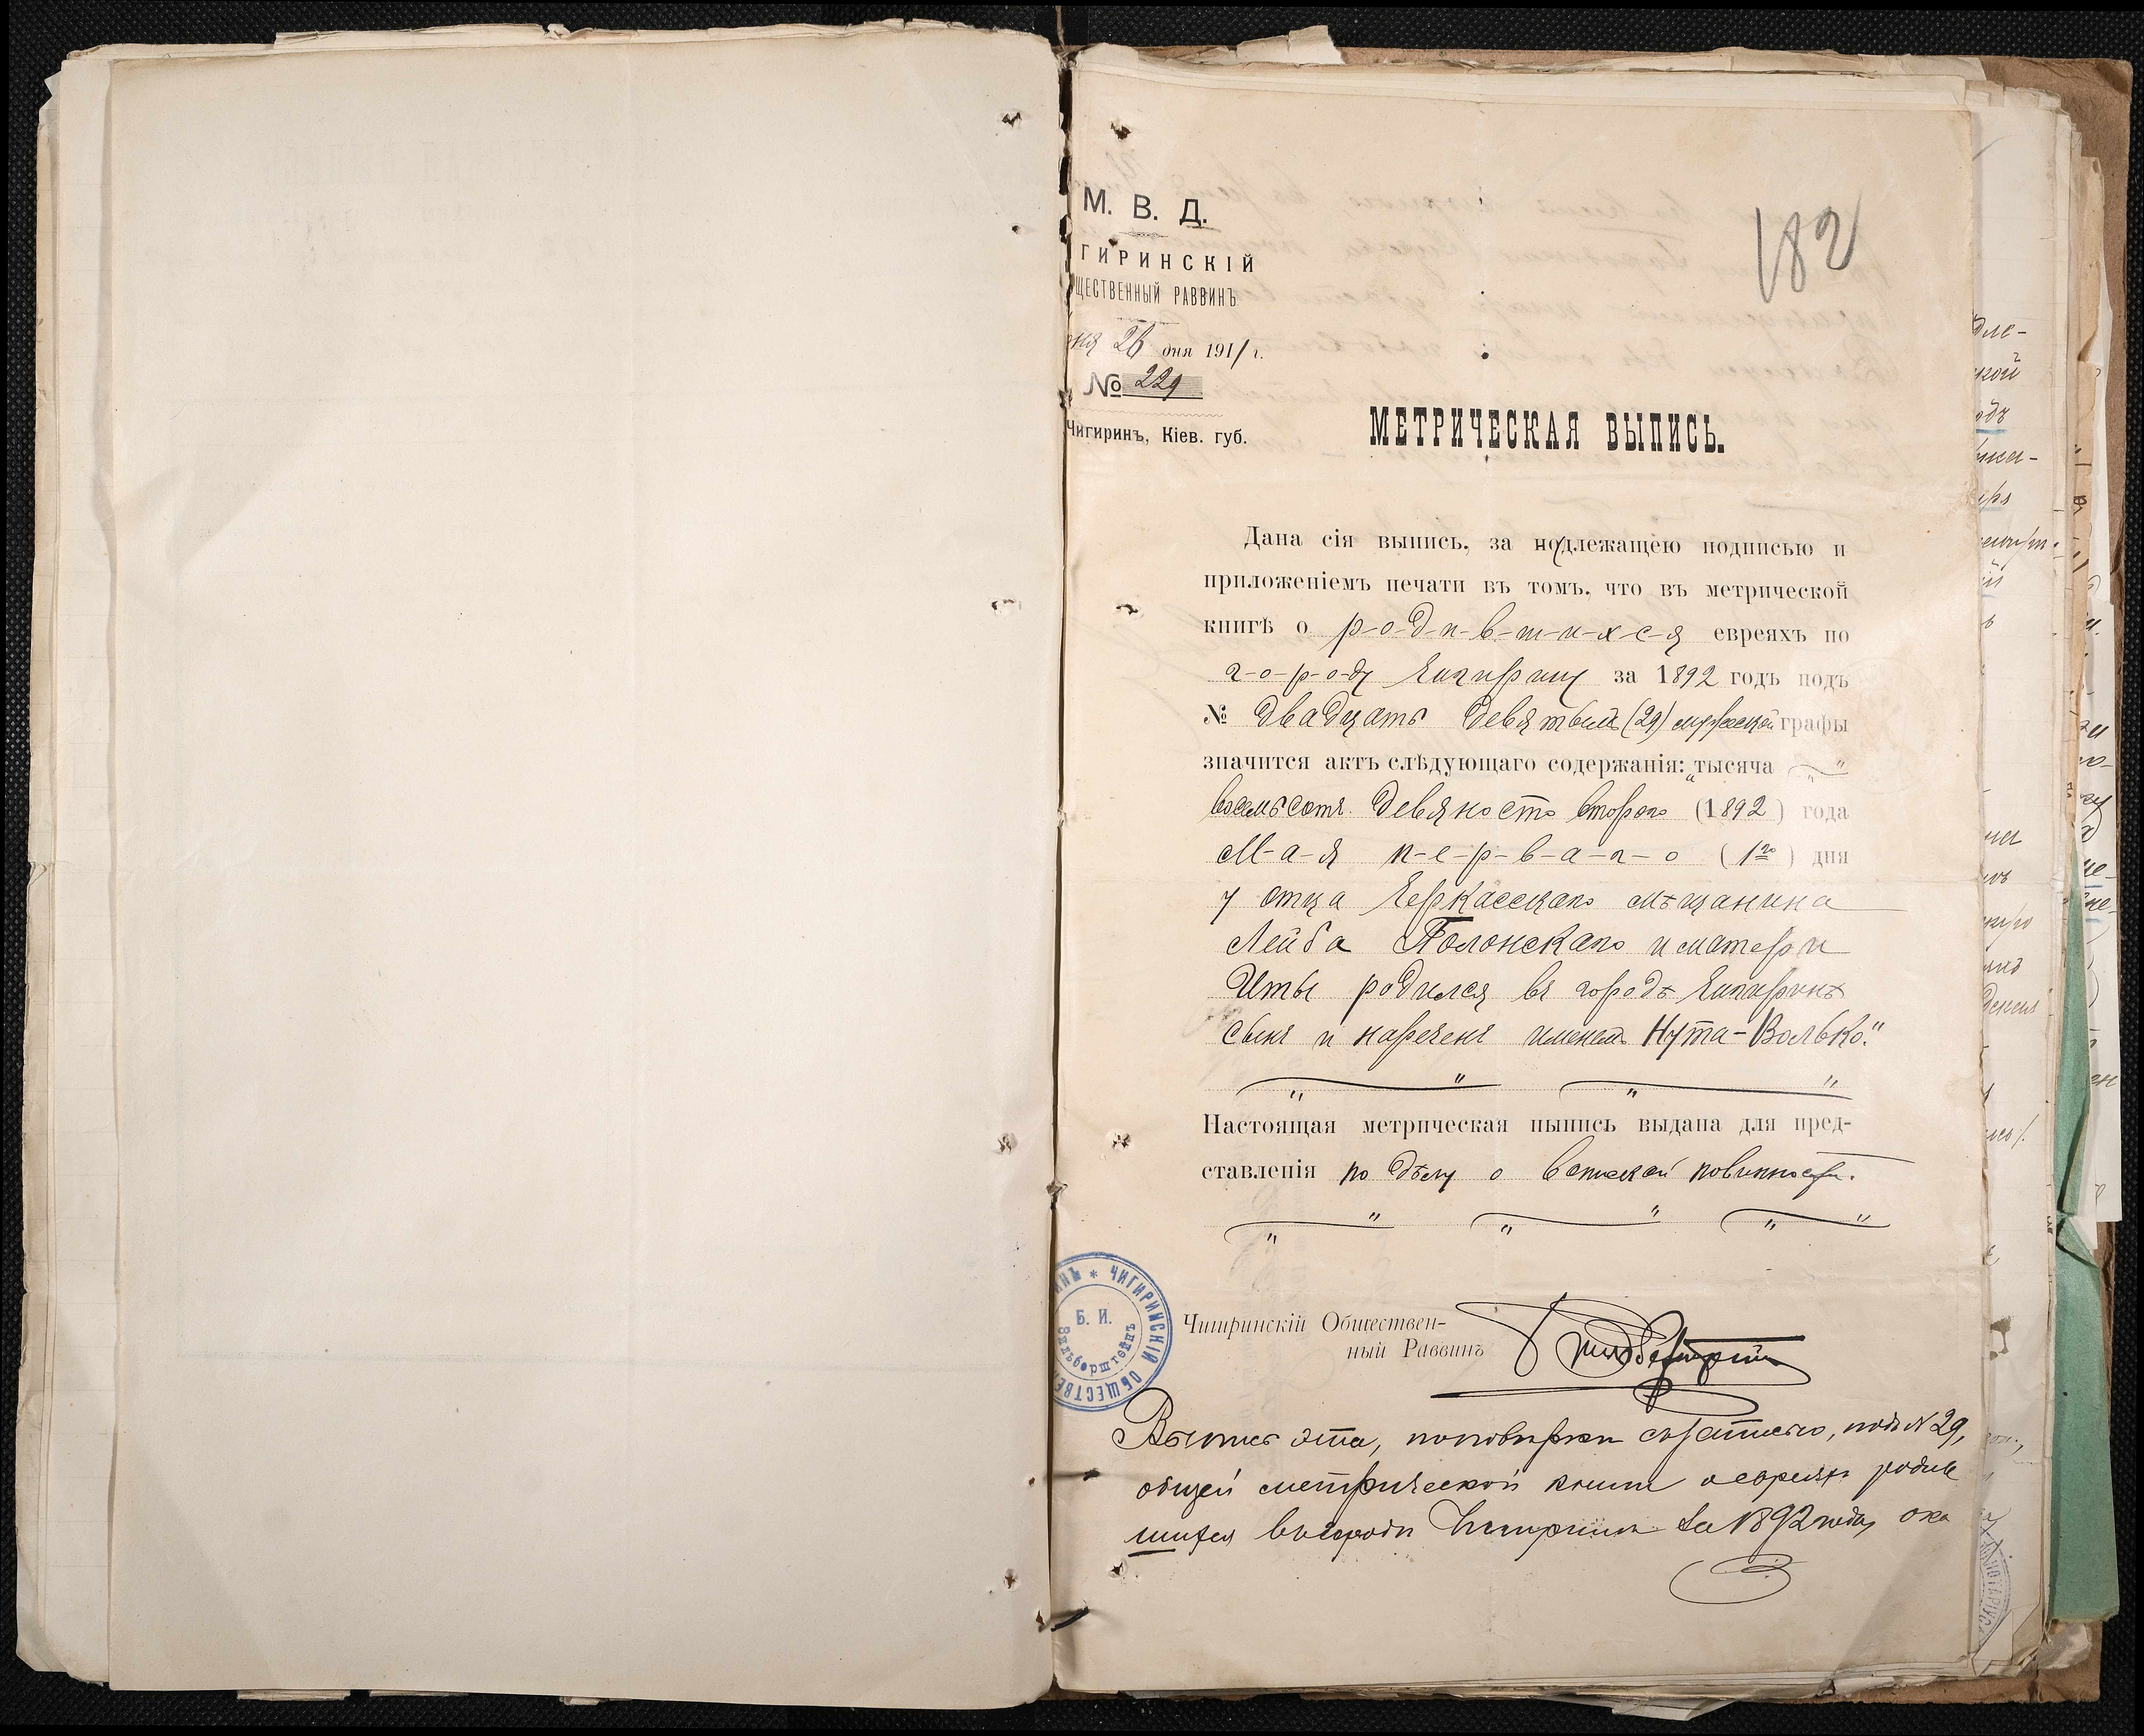 182
М. В. Д.
ГИРИНСКІЙ
ЩЕСТВЕННЫЙ РАВВИНЪ
26 дня 1911 г.
№ 229
Чигиринъ, Кіев. губ.
МЕТРИЧЕСКАЯ ВЫПИСЬ.
Дана сія выпись, за надлежащею подписью и
приложеніемъ печати въ томъ, что въ метрической
книгѣ о р-о-д-и-в-ш-и-х-с-я евреяхъ по
г-о-р-о-ду Чигирину за 1892 годъ подъ
№ двадцать девятымъ (29) мужской графы
значится актъ слѣдующаго содержанія: „тысяча
восемьсотъ девяносто второго (1892) года
М-а-я п-е-р-в-а-г-о (1го) дня
у отца Черкасскаго мѣщанина
Лейба Полонскаго и матери
Иты родился въ городѣ Чигиринѣ
сынъ и нареченъ именемъ Нута-Волько."
Настоящая метрическая выпись выдана для пред-
ставленія по дѣлу о воинской повинности.
ЧИГИРИНСКІЙ ОБЩЕСТВЕН
Б. И.
Зильберштейнъ
Чигиринскій Обществен-
ный Раввинъ
Выпись эта, по повѣркѣ съ записью, подъ № 29,
общей метрической книги о евреяхъ родив
шихся въ городѣ Чигиринѣ за 1892 годъ, ока